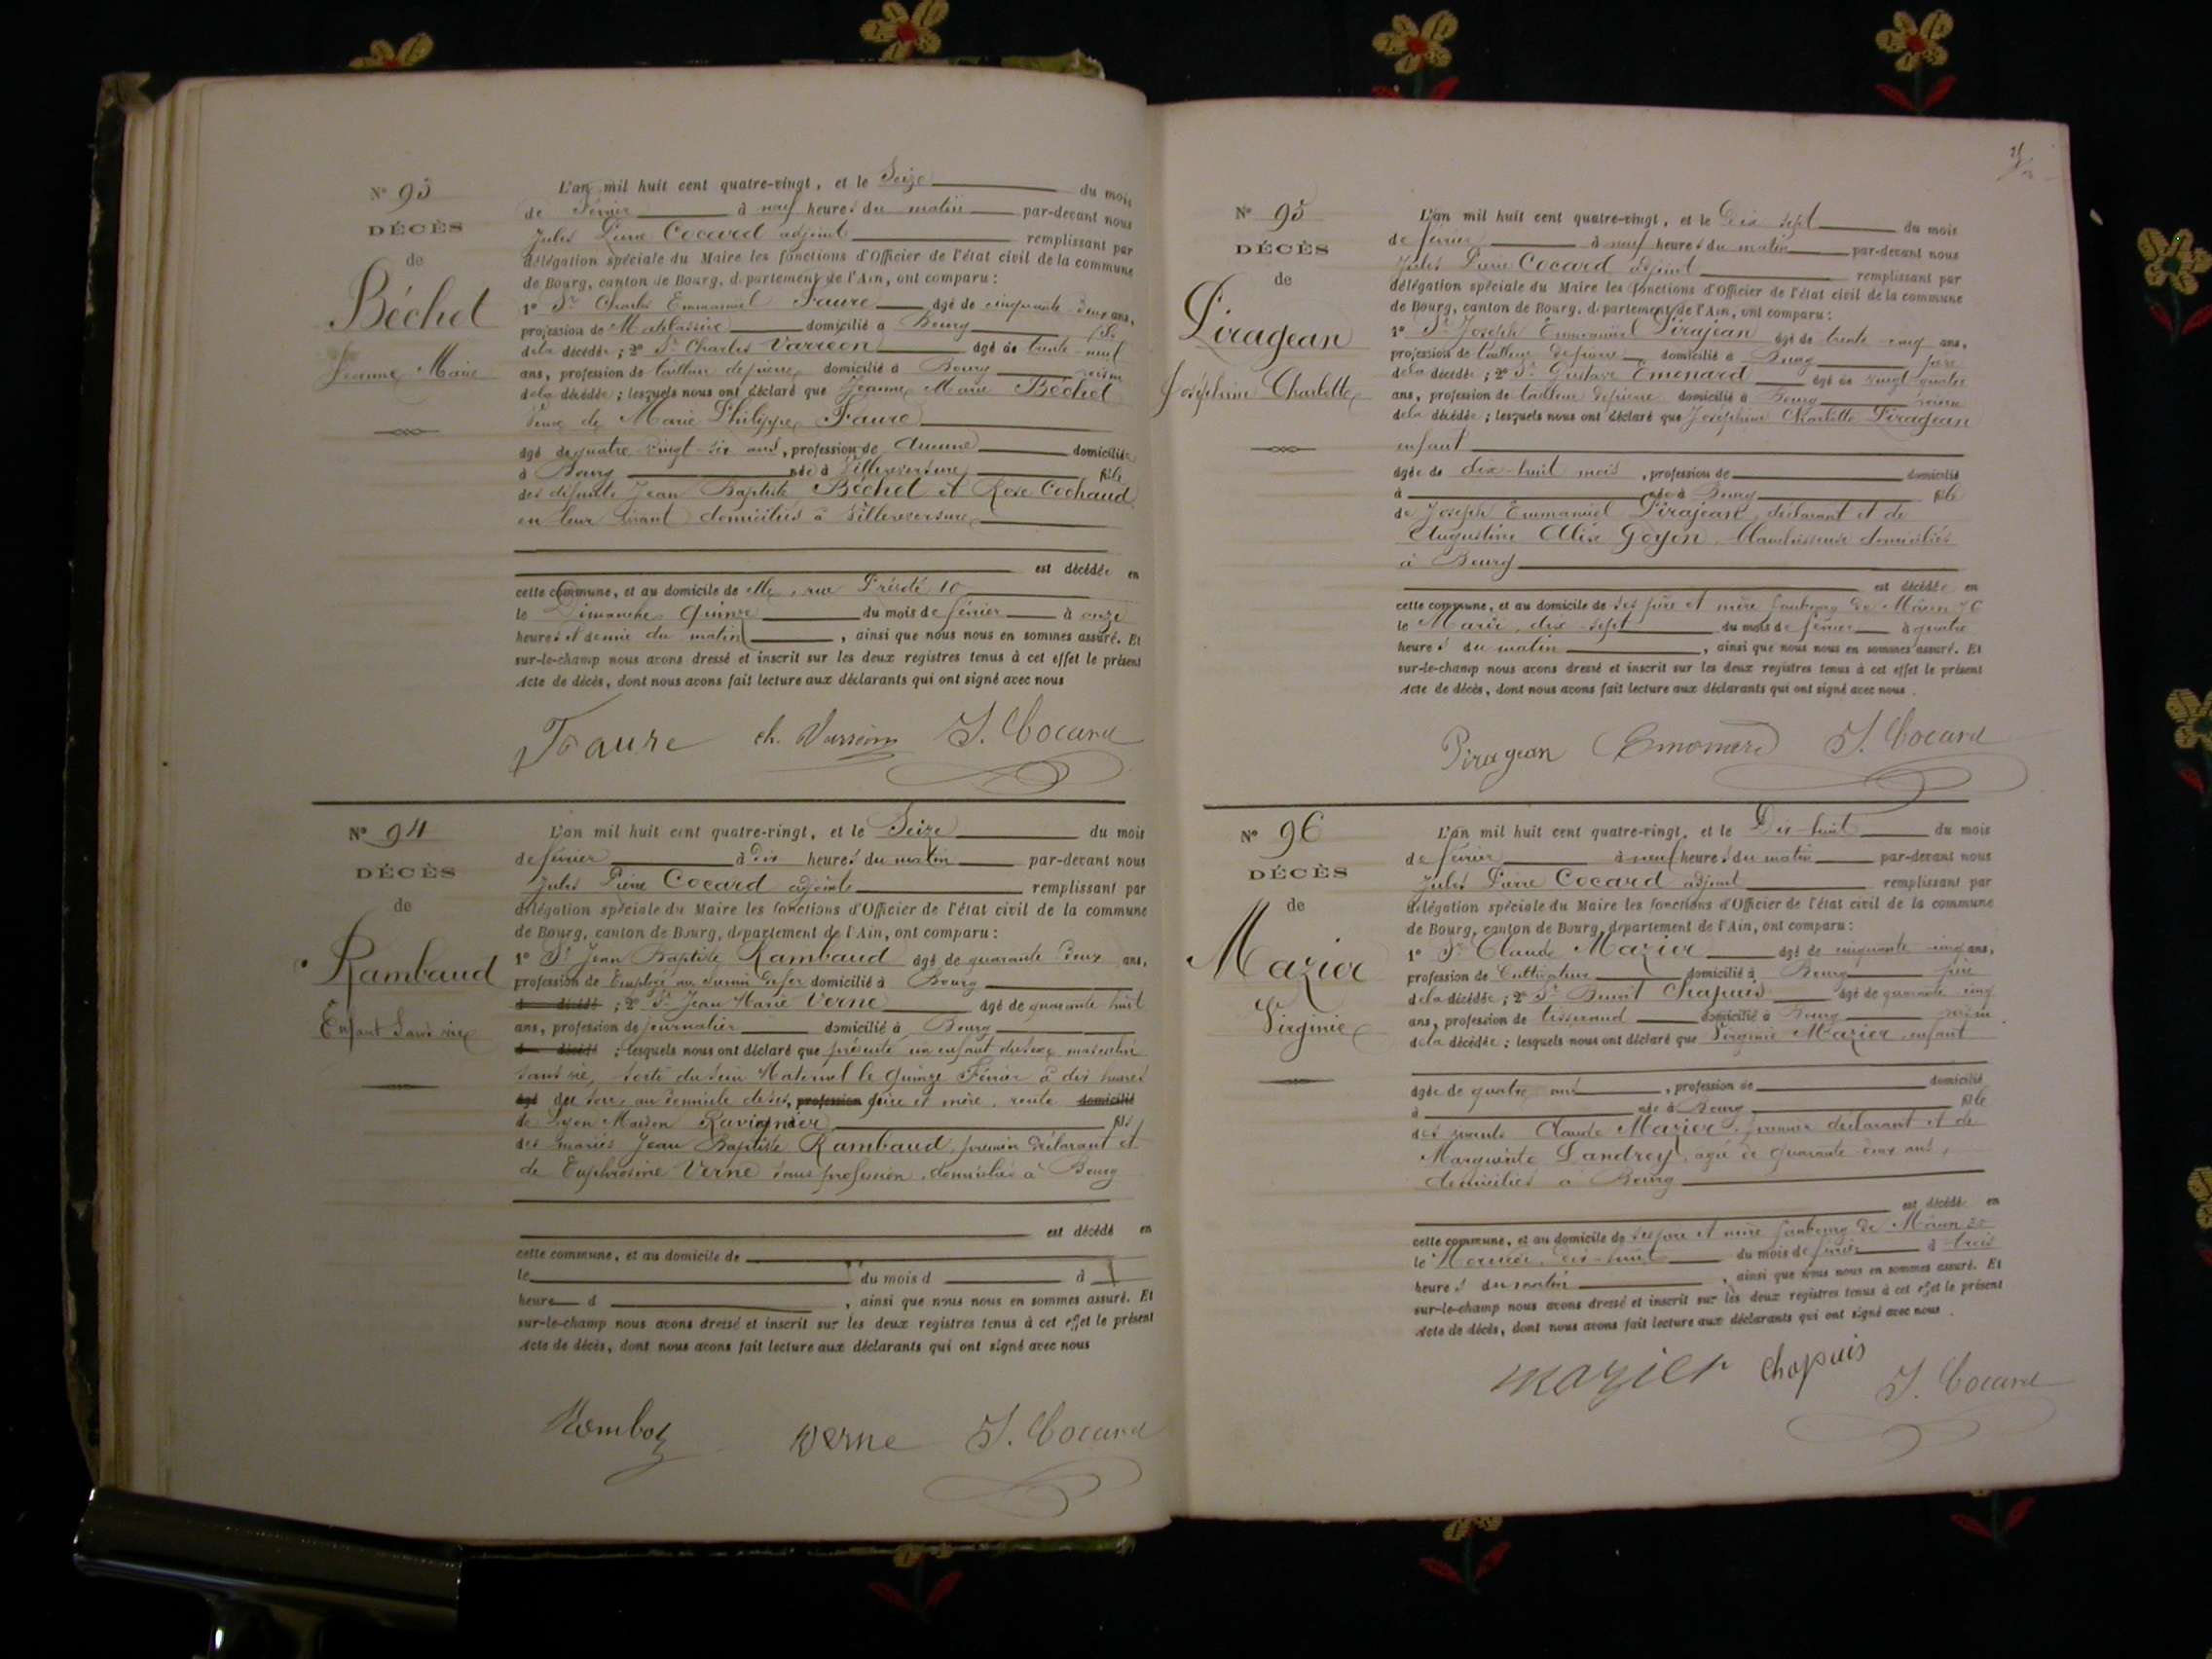 N° 93
DÉCÈS
de
Béchet
Jeanne Marie
L'an mil huit cent quatre-vingt, et le Seize du mois
de février à neuf heures du matin par-devant nous
Jules Pierre Cocard adjoint remplissant par
délégation spéciale du Maire les fonctions d'Officier de l'état civil de la commune
de Bourg, canton de Bourg, département de l'Ain, ont comparu :
1° Sr Charles Emmanuel Faure âgé de cinquante deux ans,
profession de Matelassier domicilié à Bourg fils
de la décédée ; 2° Sr Charles Varreon âgé de trente-neuf
ans, profession de tailleur de pierre, domicilié à Bourg voisin
de la décédée ; lesquels nous ont déclaré que Jeanne Marie Béchet
Veuve de Marie Philippe Faure
âgé de quatre-vingt-six ans, profession de Aucune domiciliée
à Bourg née à Villereversure fille
des défunts Jean Baptiste Béchet et Rose Cochaud
en leur vivant domiciliés à Villereversure
est décédée en
cette commune, et au domicile de elle, rue Prévôté 10
le Dimanche quinze du mois de février à onze
heures et demie du matin, ainsi que nous nous en sommes assuré. Et
sur-le-champ nous avons dressé et inscrit sur les deux registres tenus à cet effet le présent
Acte de décès, dont nous avons fait lecture aux déclarants qui ont signé avec nous
Faure ch. Varreon J. Cocard
N° 94
DÉCÈS
de
Rambaud
Enfant Sans vie
L'an mil huit cent quatre-vingt, et le Seize du mois
de février à Dix heures du matin par-devant nous
Jules Pierre Cocard adjoint remplissant par
délégation spéciale du Maire les fonctions d'Officier de l'état civil de la commune
de Bourg, canton de Bourg, département de l'Ain, ont comparu :
1° Sr Jean Baptiste Rambaud âgé de quarante Deux ans,
profession de Employé au chemin de fer domicilié à Bourg
d décédé ; 2° Sr Jean Marie Verne âgé de quarante huit
ans, profession de journalier domicilié à Bourg
d décédé ; lesquels nous ont déclaré que présenté un enfant du sexe masculin
sans vie, sorti du sein Maternel le quinze Février à dix heures
âgé du soir, au domicile de ses, profession père et mère, route domicilié
de Lyon Maison Ravignier fils
des mariés Jean Baptiste Rambaud, premier déclarant et
de Euphrosine Verne sans profession, domiciliés à Bourg
est décédé en
cette commune, et au domicile de
le du mois d à
heure d , ainsi que nous nous en sommes assuré. Et
sur-le-champ nous avons dressé et inscrit sur les deux registres tenus à cet effet le présent
Acte de décès, dont nous avons fait lecture aux déclarants qui ont signé avec nous
verne J. Cocard
N° 95
DÉCÈS
de
Piragean
Joséphine Charlotte
L'an mil huit cent quatre-vingt, et le Dix sept du mois
de février à neuf heures du matin par-devant nous
Jules Pierre Cocard adjoint remplissant par
délégation spéciale du Maire les fonctions d'Officier de l'état civil de la commune
de Bourg, canton de Bourg, département de l'Ain, ont comparu :
1° Sr Joseph Emmanuel Pirajean âgé de trente cinq ans,
profession de tailleur de pierre domicilié à Bourg père
de la décédée ; 2° Sr Gustave Emenard âgé de vingt quatre
ans, profession de tailleur de pierre domicilié à Bourg voisin
de la décédée ; lesquels nous ont déclaré que Joséphine Charlotte Piragean
enfant
âgée de dix-huit mois, profession de domicilié
à née à Bourg fille
de Joseph Emmanuel Pirajean, déclarant et de
Augustine Alix Goyon, blanchisseuse domiciliés
à Bourg
est décédée en
cette commune, et au domicile de ses père et mère faubourg de Mâcon
le Mardi, dix-sept du mois de février à quatre
heures du matin, ainsi que nous nous en sommes assuré. Et
sur-le-champ nous avons dressé et inscrit sur les deux registres tenus à cet effet le présent
Acte de décès, dont nous avons fait lecture aux déclarants qui ont signé avec nous.
Piragean Emonard J. Cocard
N° 96
DÉCÈS
de
Mazier
Virginie
L'an mil huit cent quatre-vingt, et le Dix-huit du mois
de février à neuf heures du matin par-devant nous
Jules Pierre Cocard adjoint remplissant par
délégation spéciale du Maire les fonctions d'Officier de l'état civil de la commune
de Bourg, canton de Bourg, département de l'Ain, ont comparu :
1° Sr Claude Mazier âgé de cinquante cinq ans,
profession de Cultivateur domicilié à Bourg père
de la décédée ; 2° Sr Benoit Chapuis âgé de quarante cinq
ans, profession de tisserand domicilié à Bourg voisin
de la décédée ; lesquels nous ont déclaré que Virginie Mazier, enfant
âgée de quatre ans, profession de domicilié
à née à Bourg fille
des vivants Claude Mazier, premier déclarant et de
Marguerite Landrey, agée de quarante deux ans,
domiciliés à Bourg
est décédée en
cette commune, et au domicile de ses père et mère faubourg de Mâcon
le Mercredi, dix-huit du mois de février à trois
heures du matin, ainsi que nous nous en sommes assuré. Et
sur-le-champ nous avons dressé et inscrit sur les deux registres tenus à cet effet le présent
Acte de décès, dont nous avons fait lecture aux déclarants qui ont signé avec nous.
mazier chapuis J. Cocard